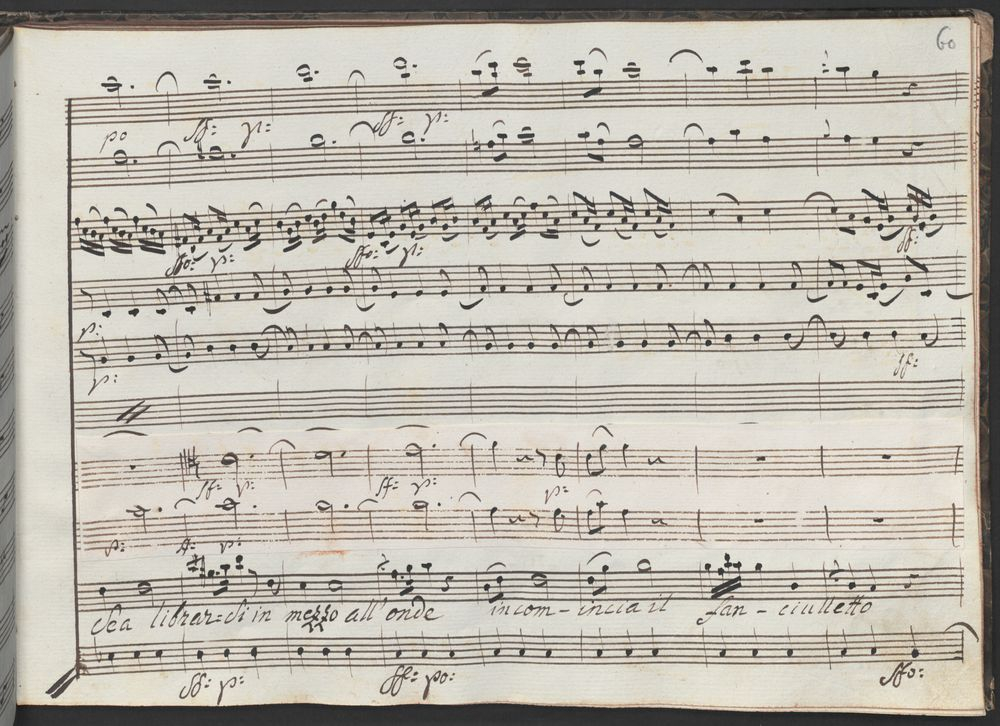 60
po sf: p: sf: p:
sfo: p: sfo: p: sf:
p:
p: sf:
sf: p: sf: p: p:
p: p:
Sea librar=si in mezzo all'onde incom-incia il fan-ciulletto
sf: p: sf: po: sfo: